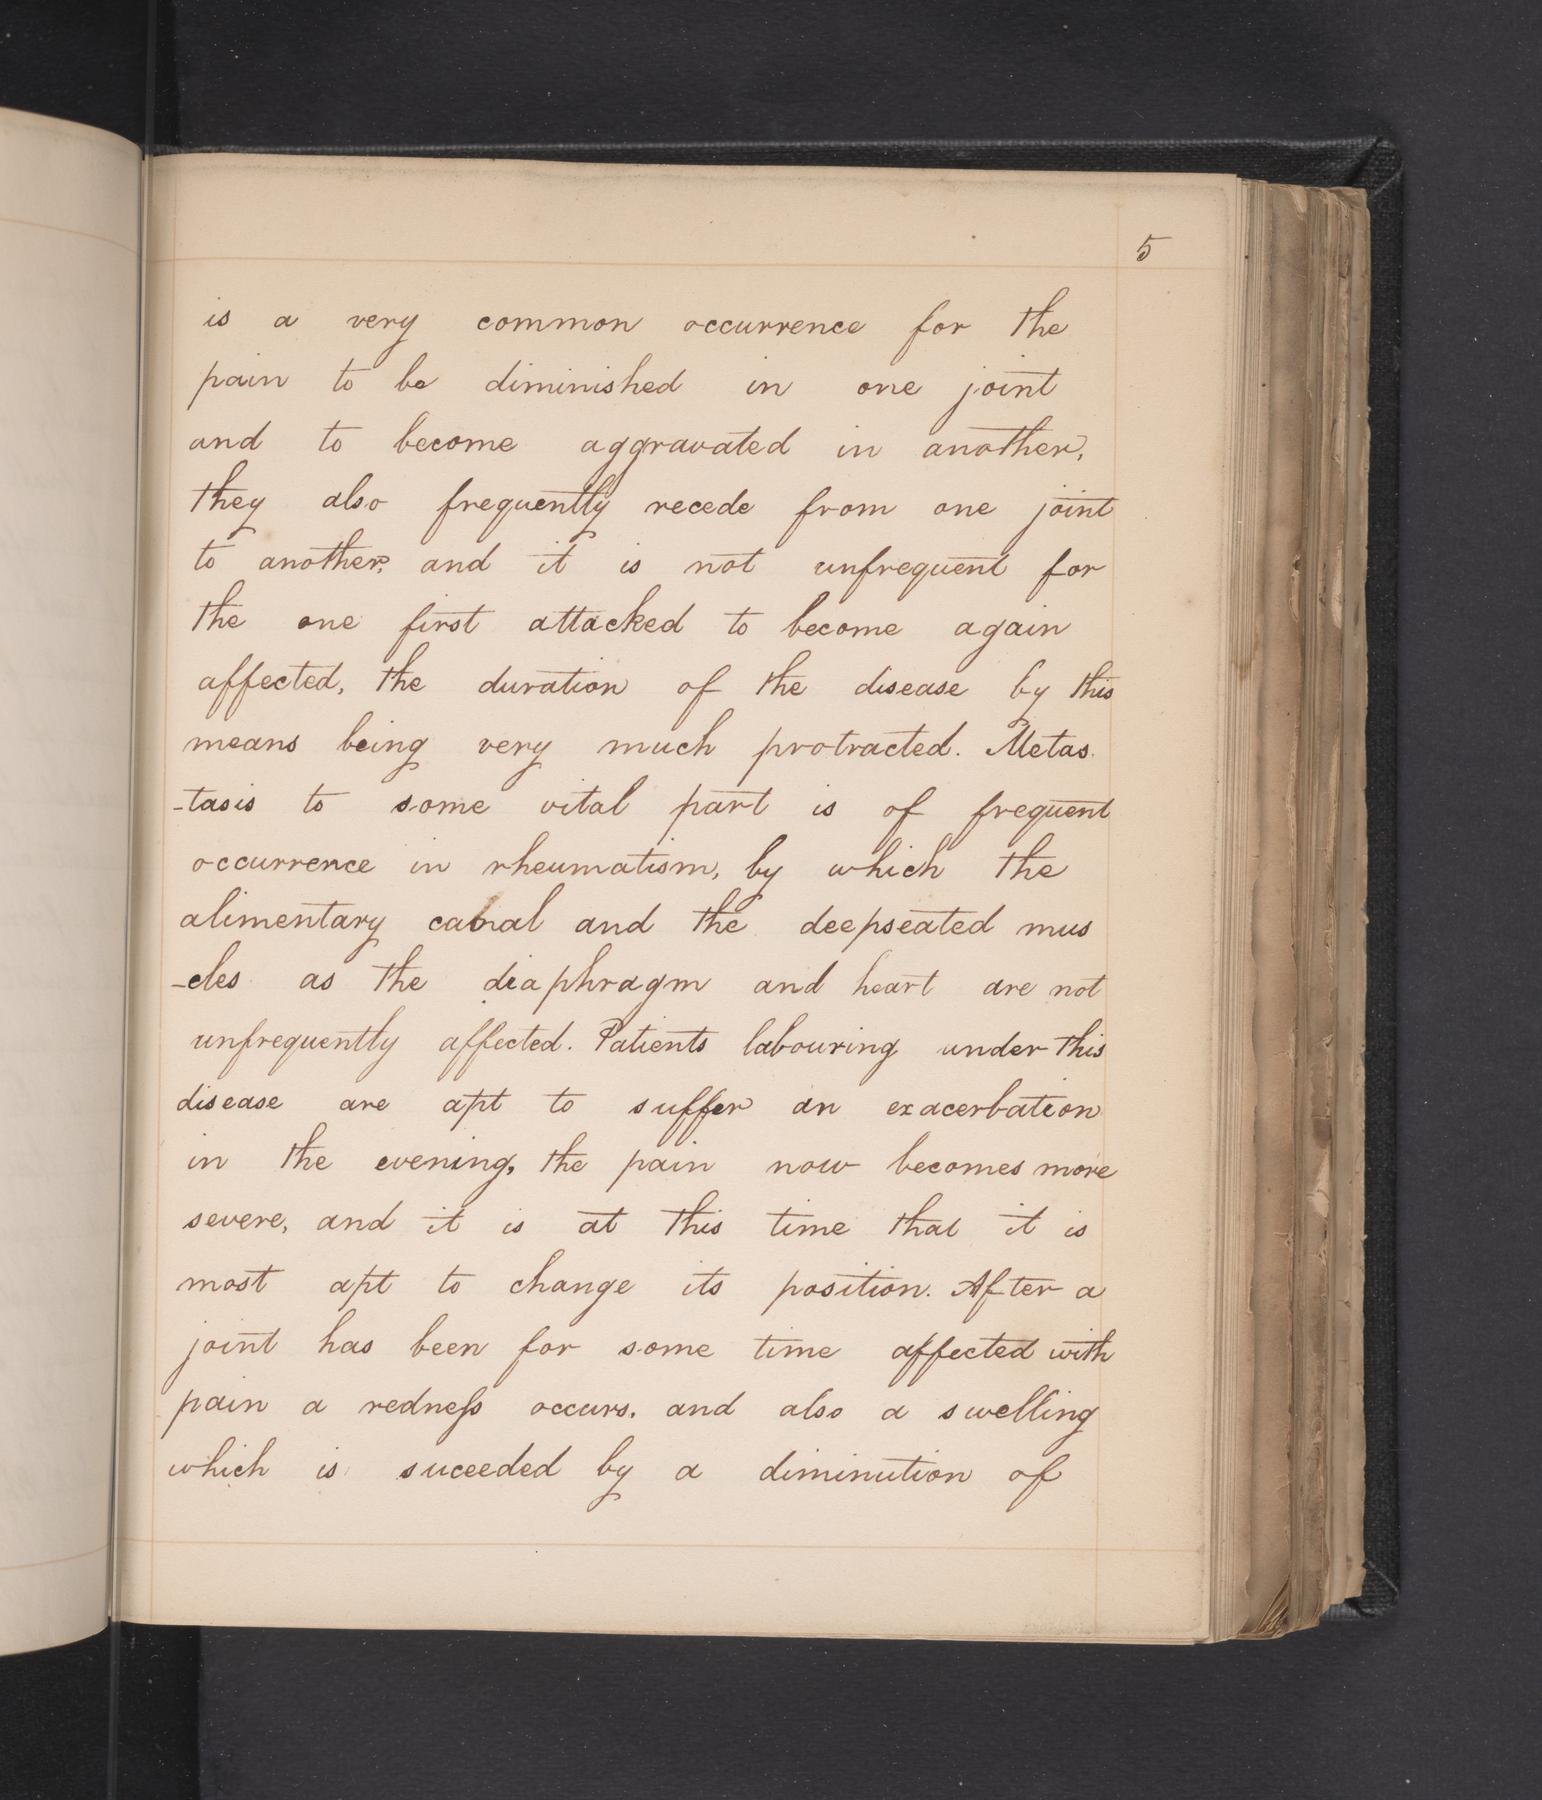 5
is a very common occurrence for the
pain to be diminished in one joint
and to become aggravated in another,
they also frequently recede from one joint
to another, and it is not unfrequent for
the one first attacked to become again
affected, the duration of the disease by this
means being very much protracted. Metas
-tasis to some vital part is of frequent
occurrence in rheumatism, by which the
alimentary canal and the deepseated mus
-cles as the diaphragm and heart are not
unfrequently affected. Patients labouring under this
disease are apt to suffer an exacerbation
in the evening, the pain now becomes more
severe, and it is at this time that it is
most apt to change its position. After a
joint has been for some time affected with
pain a redneſs occurs, and also a swelling
which is suceeded by a diminution of